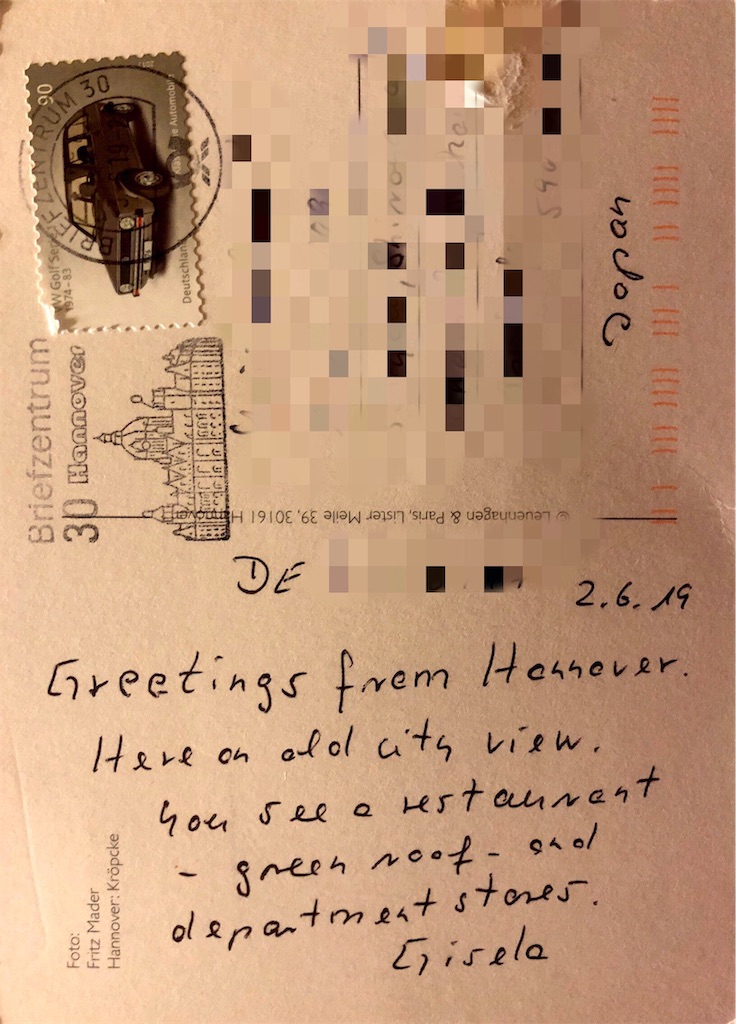 BRIEFZENTRUM 30
90
1974-83
Deutschland
Briefzentrum
30 Hannover
Japan
© Leuenhagen & Paris, Lister Meile 39, 30161 Hannover
DE
2.6.19
Greetings from Hannover.
Here an old city view.
You see a restaurant
- green roof - and
department stores.
Gisela
Foto:
Fritz Mader
Hannover: Kröpcke